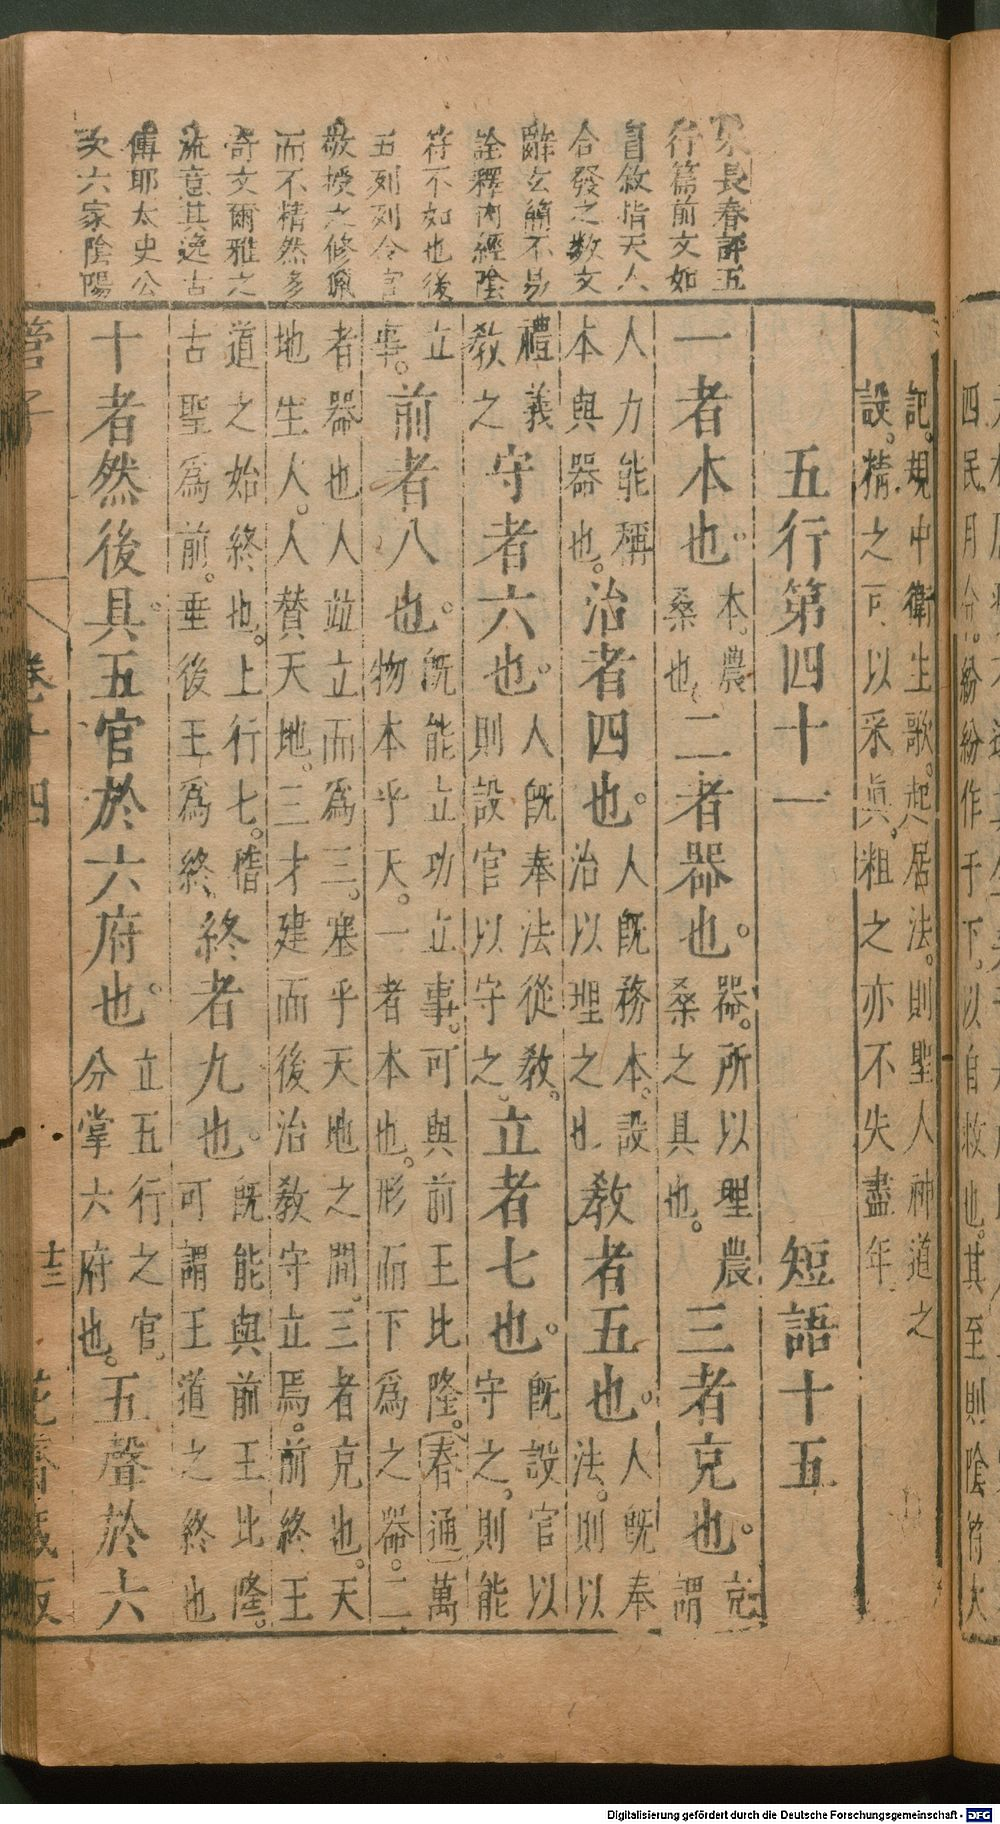 四民月令。紛紛作于下。以自救也。其至則陰符大
朱長春評五
行篇前文如
首敘皆天人
合發之數文
辭玄簡不易
詮釋內經陰
符不如也後
五列列令官
敬授之修職
而不精然多
奇文爾雅之
流意其逸古
傳耶太史公
次六家陰陽
記。規中衛生歌。起居法。則聖人神道之
設。精之可以采眞。粗之亦不失盡年
五行第四十一 短語十五
一者本也。本。農桑也二者器也。器。所以理農桑之具也。三者克也。克謂
人力能稱本與器也。治者四也。人既務本。設治以理之也教者五也。人既奉法。則以
禮義教之守者六也。人既奉法從教。則設官以守之。立者七也。既設官以守之。則能
立事。前者八也。既能立功立事。可與前王比隆。(春通)萬物本乎天。一者本也。形而下爲之器。二
者器也人竝立而爲三。塞乎天地之間。三者克也。天地生人。人賛天地。三才建而後治教守立焉。前終王
道之始終也。上行七。惜古聖爲前。垂後王爲終。終者九也。既能與前王比隆。可謂王道之終也
十者然後具。五官於六府也。立五行之官。分掌六府也。五聲於六
管子 卷十四 十三 花齋藏板
Digitalisierung gefördert durch die Deutsche Forschungsgemeinschaft - DFG